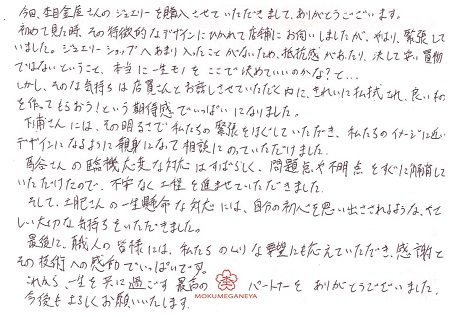 今回、杢目金屋さんのジュエリーを購入させていただきまして、ありがとうございます。
初めて見た時、その特徴的なデザインにひかれて店舗にお伺いしましたが、やはり緊張して
いました。ジュエリーショップへあまり入ったことがないため、抵抗感があったり、決して安い買物
ではないということ、本当に一生モノをここで決めていいのかな?と…
しかし、そんな気持ちは店員さんとお話しさせていただく内に、きれいに払拭され、良いもの
を作ってもらおう!という期待感でいっぱいになりました。
下浦さんには、その明るさで私たちの緊張をほぐしていただき、私たちのイメージに近い
デザインになるように親身になって相談にのっていただけました。
馬谷さんの臨機応変な対応はすばらしく、問題点や不明点をすぐに解消して
いただけたので、不安なく工程を進ませていただきました。
そして、土肥さんの一生懸命な対応には、自分の初心を思い出されるような、やさ
しい大切な気持ちをいただきました。
最後に、職人の皆様には、私たちのムリな要望にも応えていただき、感謝と
その技術への感動でいっぱいです。
これから、一生を共に過ごす最高のパートナーをありがとうございました。
MOKUMEGANEYA
今後もよろしくお願いいたします。